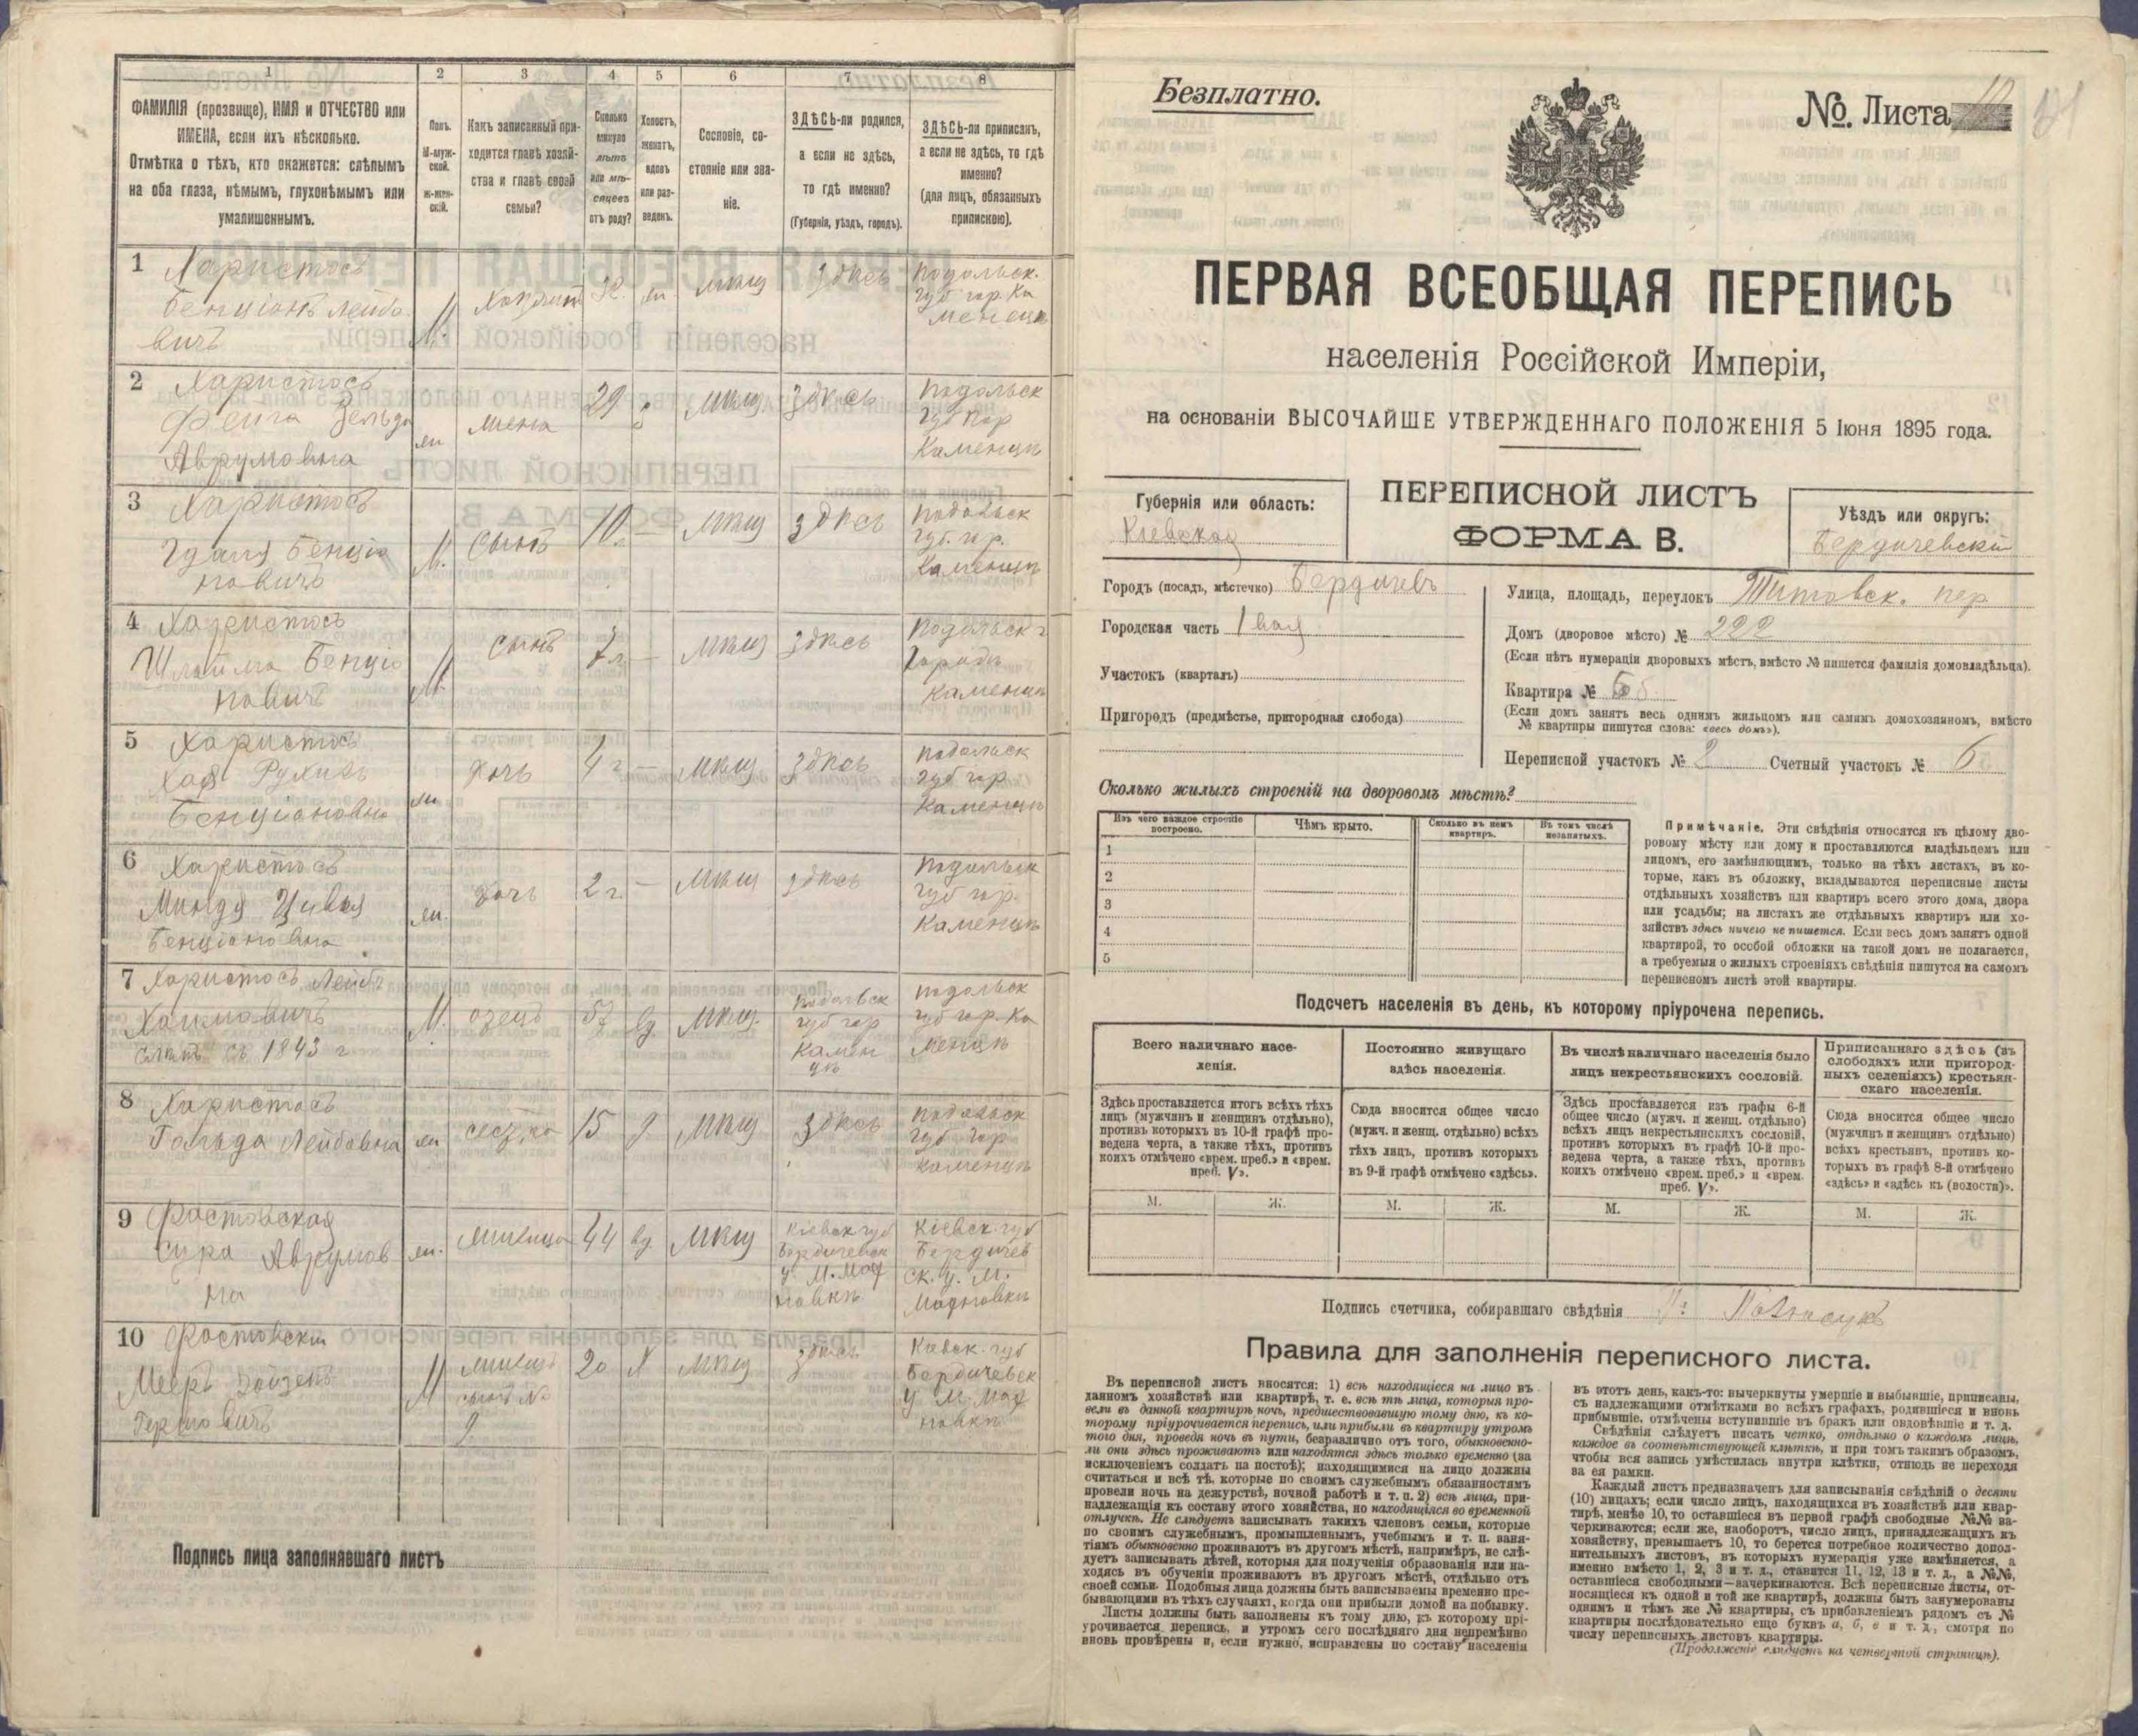 1
2
3
4
5
6
7
8
ФАМИЛІЯ (прозвище), ИМЯ и ОТЧЕСТВО или
ИМЕНА, если ихъ нѣсколько.
Отмѣтка о тѣхъ, кто окажется: слѣпымъ
на оба глаза, нѣмымъ, глухонѣмымъ или
умалишеннымъ.
Полъ.
М-муж-
ской.
Ж-жен-
скій.
Какъ записанный при-
ходится главѣ хозяй-
ства и главѣ своей
семьи?
Сколько
минуло
лѣтъ
или мѣ-
сяцевъ
отъ роду?
Холостъ,
женатъ,
вдовъ
или раз-
веденъ.
Сословіе, со-
стояніе или зва-
ніе.
ЗДѢСЬ-ли родился,
а если не здѣсь,
то гдѣ именно?
(Губернія, уѣздъ, городъ).
ЗДѢСЬ-ли приписанъ,
а если не здѣсь, то гдѣ
именно?
(для лицъ, обязанныхъ
припискою).
1 Харистосъ
Бенціонъ Лейбо
вичъ
М.
мѣщ
здѣсь
Подольск.
губ гор. Ка
менецъ
2 Харистосъ
Фейга Зельда
Аврумовна
жена
29
мѣщ
здѣсь
Подольск
губ гор
Каменцѣ
3 Харистосъ
Бенціо
новичъ
М.
сынъ
10
—
мѣщ
здѣсь
Подольск
губ. гор.
Каменцѣ
4 Харистосъ
Шлойма Бенціо
новичъ
М.
сынъ
7 л
—
мѣщ
здѣсь
Подольск г
городъ
Каменцѣ
5 Харистосъ
Хая Рухля
Бенціоновна
дочь
4 г
—
мѣщ
здѣсь
Подольск
губ гор
Каменцѣ
6 Харистосъ
Миндя Цивья
Бенціоновна
дочь
2 г.
—
мѣщ
здѣсь
Подольск
губ гор.
Каменцѣ
7 Харистосъ Лейбъ
Хаимовичъ
слѣпъ съ 1843 г
М.
отецъ
57
вд
мѣщ.
Подольск
губ гор
Камен
цѣ
Подольск
губ гор. Ка
менцѣ
8 Харистосъ
Гольда Лейбовна
сестра
15
мѣщ
здѣсь
Подольск
губ гор
Каменцѣ
9 Фастовская
Сура Аврумов
на
44
вд.
мѣщ
Кіевск губ
Бердичевск
у. м. Мах
новкѣ
Кіевск. губ
Бердичев
ск. у. м.
Махновкѣ
10 Фастовскій
Мееръ
Гершовичъ
М
сынъ №
9
20
Х
мѣщ
здѣсь
Кіевск. губ
Бердичевск
у м. Мах
новкѣ
Подпись лица заполнявшаго листъ
Безплатно.
№. Листа
ПЕРВАЯ ВСЕОБЩАЯ ПЕРЕПИСЬ
населенія Россійской Имперіи,
на основаніи ВЫСОЧАЙШЕ УТВЕРЖДЕННАГО ПОЛОЖЕНІЯ 5 Іюня 1895 года.
Губернія или область:
Кіевская
ПЕРЕПИСНОЙ ЛИСТЪ
ФОРМА В.
Уѣздъ или округъ:
Бердичевскій
Городъ (посадъ, мѣстечко) Бердичевъ
Городская часть 1 вая
Участокъ (кварталъ)
Пригородъ (предмѣстье, пригородная слобода)
Улица, площадь, переулокъ Титовск. пер
Домъ (дворовое мѣсто) № 222
(Если нѣтъ нумераціи дворовыхъ мѣстъ, вмѣсто № пишется фамилія домовладѣльца).
Квартира №
(Если домъ занятъ весь однимъ жильцомъ или самимъ домохозяиномъ, вмѣсто
№ квартиры пишутся слова: «весь домъ»).
Переписной участокъ № 2 Счетный участокъ № 6
Сколько жилыхъ строеній на дворовомъ мѣстѣ?
Изъ чего каждое строеніе
построено.
Чѣмъ крыто.
Сколько въ немъ
квартиръ.
Въ томъ числѣ
незанятыхъ.
1
2
3
4
5
Примѣчаніе. Эти свѣдѣнія относятся къ цѣлому дво-
ровому мѣсту или дому и проставляются владѣльцемъ или
лицомъ, его замѣняющимъ, только на тѣхъ листахъ, въ ко-
торые, какъ въ обложку, вкладываются переписные листы
отдѣльныхъ хозяйствъ или квартиръ всего этого дома, двора
или усадьбы; на листахъ же отдѣльныхъ квартиръ или хо-
зяйствъ здѣсь ничего не пишется. Если весь домъ занятъ одной
квартирой, то особой обложки на такой домъ не полагается,
а требуемыя о жилыхъ строеніяхъ свѣдѣнія пишутся на самомъ
переписномъ листѣ этой квартиры.
Подсчетъ населенія въ день, къ которому пріурочена перепись.
Всего наличнаго насе-
ленія.
Здѣсь проставляется итогъ всѣхъ тѣхъ
лицъ (мужчинъ и женщинъ отдѣльно),
противъ которыхъ въ 10-й графѣ про-
ведена черта, а также тѣхъ, противъ
коихъ отмѣчено «врем. преб.» и «врем.
преб. V».
М.
Ж.
Постоянно живущаго
здѣсь населенія.
Сюда вносится общее число
(мужч. и женщ. отдѣльно) всѣхъ
тѣхъ лицъ, противъ которыхъ
въ 9-й графѣ отмѣчено «здѣсь».
М.
Ж.
Въ числѣ наличнаго населенія было
лицъ некрестьянскихъ сословій.
Здѣсь проставляется изъ графы 6-й
общее число (мужч. и женщ. отдѣльно)
всѣхъ лицъ некрестьянскихъ сословій,
противъ которыхъ въ графѣ 10-й про-
ведена черта, а также тѣхъ, противъ
коихъ отмѣчено «врем. преб.» и «врем.
преб. V».
М.
Ж.
Приписаннаго здѣсь (въ
слободахъ или пригород-
ныхъ селеніяхъ) крестьян-
скаго населенія.
Сюда вносится общее число
(мужчинъ и женщинъ отдѣльно)
всѣхъ крестьянъ, противъ ко-
торыхъ въ графѣ 8-й отмѣчено
«здѣсь» и «здѣсь къ (волости)».
М.
Ж.
Подпись счетчика, собиравшаго свѣдѣнія
Правила для заполненія переписного листа.
Въ переписной листъ вносятся: 1) всѣ находящіеся на лицо въ
данномъ хозяйствѣ или квартирѣ, т. е. всѣ тѣ лица, которыя про-
вели въ данной квартирѣ ночь, предшествовавшую тому дню, къ ко-
торому пріурочивается перепись, или прибыли въ квартиру утромъ
того дня, проведя ночь въ пути, безразлично отъ того, обыкновенно-
ли они здѣсь проживаютъ или находятся здѣсь только временно (за
исключеніемъ солдатъ на постоѣ); находящимися на лицо должны
считаться и всѣ тѣ, которые по своимъ служебнымъ обязанностямъ
провели ночь на дежурствѣ, ночной работѣ и т. п. 2) всѣ лица, при-
надлежащія къ составу этого хозяйства, но находящіяся во временной
отлучкѣ. Не слѣдуетъ записывать такихъ членовъ семьи, которые
по своимъ служебнымъ, промышленнымъ, учебнымъ и т. п. заня-
тіямъ обыкновенно проживаютъ въ другомъ мѣстѣ, напримѣръ, не слѣ-
дуетъ записывать дѣтей, которыя для полученія образованія или на-
ходясь въ обученіи проживаютъ въ другомъ мѣстѣ, отдѣльно отъ
своей семьи. Подобныя лица должны быть записываемы временно пре-
бывающими въ тѣхъ случаяхъ, когда они прибыли домой на побывку.
Листы должны быть заполнены къ тому дню, къ которому прі-
урочивается перепись, и утромъ сего послѣдняго дня непремѣнно
вновь провѣрены и, если нужно, исправлены по составу населенія
въ этотъ день, какъ-то: вычеркнуты умершіе и выбывшіе, приписаны,
съ надлежащими отмѣтками во всѣхъ графахъ, родившіеся и вновь
прибывшіе, отмѣчены вступившіе въ бракъ или овдовѣвшіе и т. д.
Свѣдѣнія слѣдуетъ писать четко, отдѣльно о каждомъ лицѣ,
каждое въ соотвѣтствующей клѣткѣ, и при томъ такимъ образомъ,
чтобы вся запись умѣстилась внутри клѣтки, отнюдь не переходя
за ея рамки.
Каждый листъ предназначенъ для записыванія свѣдѣній о десяти
(10) лицахъ; если число лицъ, находящихся въ хозяйствѣ или квар-
тирѣ, менѣе 10, то оставшіеся въ первой графѣ свободные №№ за-
черкиваются; если же, наоборотъ, число лицъ, принадлежащихъ къ
хозяйству, превышаетъ 10, то берется потребное количество допол-
нительныхъ листовъ, въ которыхъ нумерація уже измѣняется, а
именно вмѣсто 1, 2, 3 и т. д., ставится 11, 12, 13 и т. д., а №№,
оставшіеся свободными—зачеркиваются. Всѣ переписные листы, от-
носящіеся къ одной и той же квартирѣ, должны быть занумерованы
однимъ и тѣмъ же № квартиры, съ прибавленіемъ рядомъ съ №
квартиры послѣдовательно еще буквъ а, б, в и т. д., смотря по
числу переписныхъ листовъ квартиры.
(Продолженіе слѣдуетъ на четвертой страницѣ).